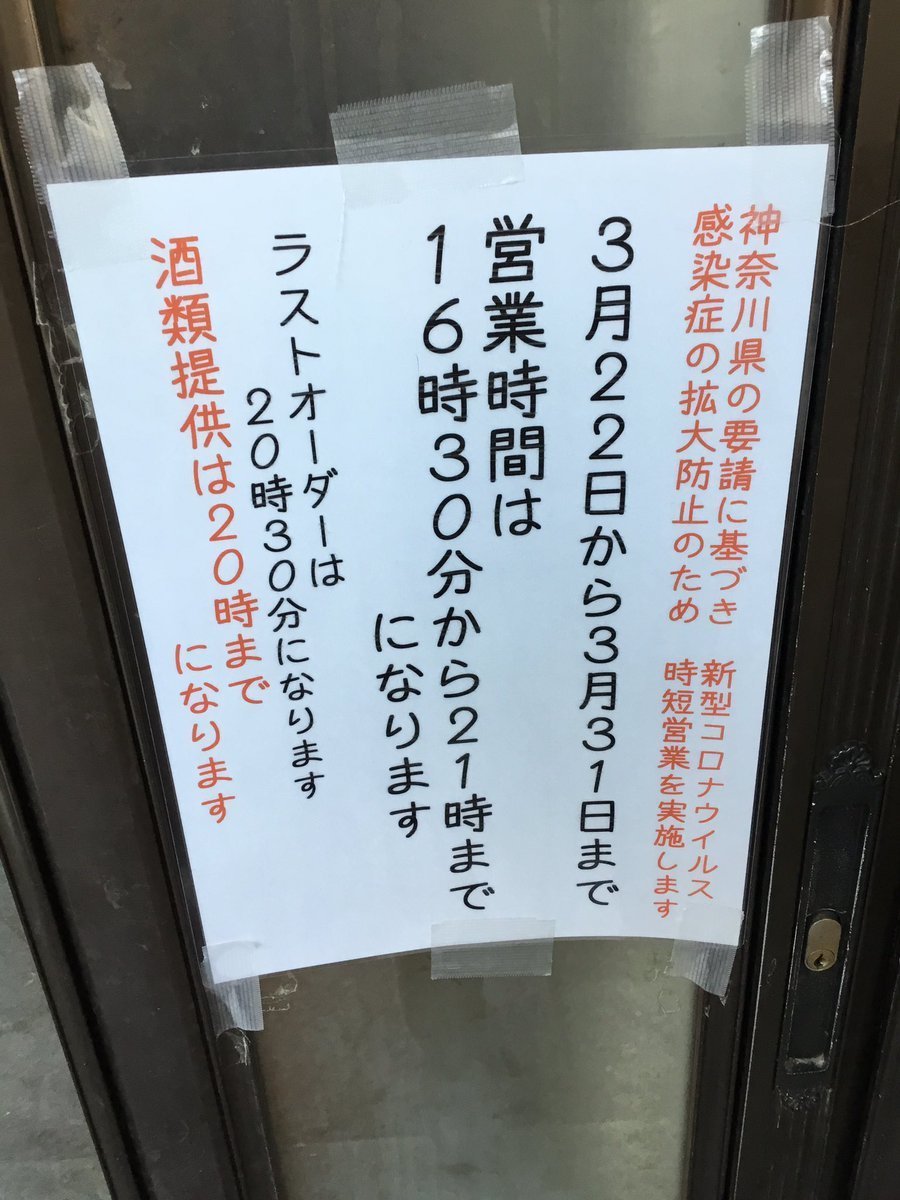 神奈川県の要請に基づき　新型コロナウイルス
感染症の拡大防止のため　時短営業を実施します
３月２２日から３月３１日まで
営業時間は
１６時３０分から２１時まで
になります
ラストオーダーは
２０時３０分になります
酒類提供は２０時まで
になります